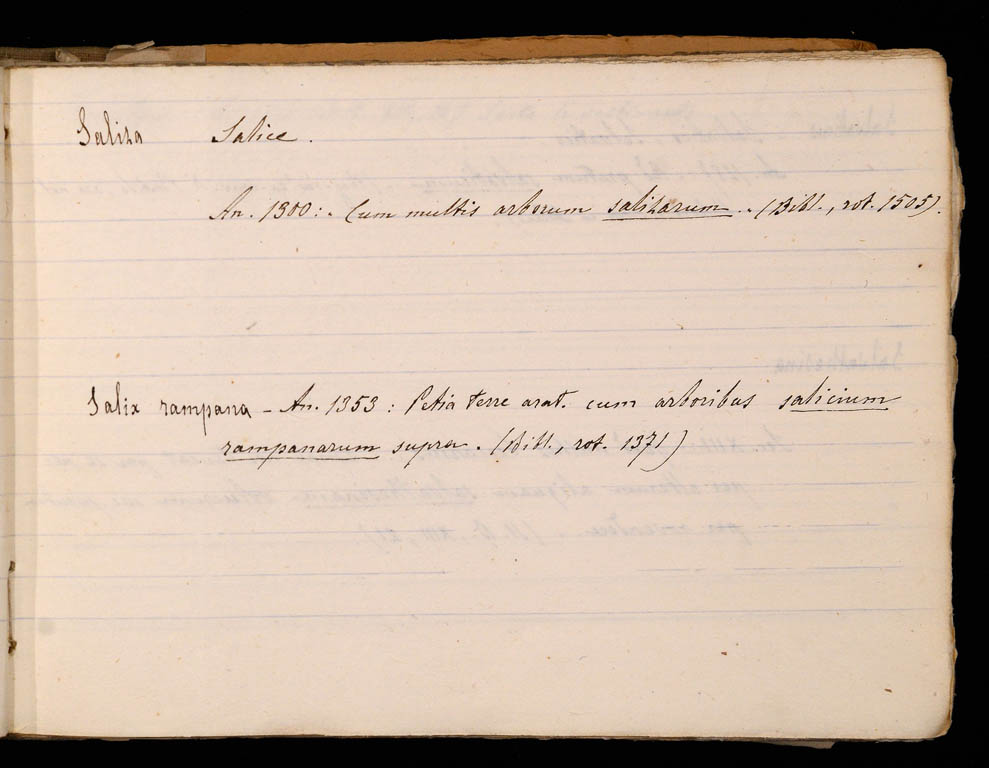 Saliza Salice.
An. 1300: „ Cum multis arborum salizarum „ (Bibl., rot. 1505).
Salix rampana – An. 1353: Petia terre arat. cum arboribus salicium
rampanarum supra. (Bibl., rot. 1371)